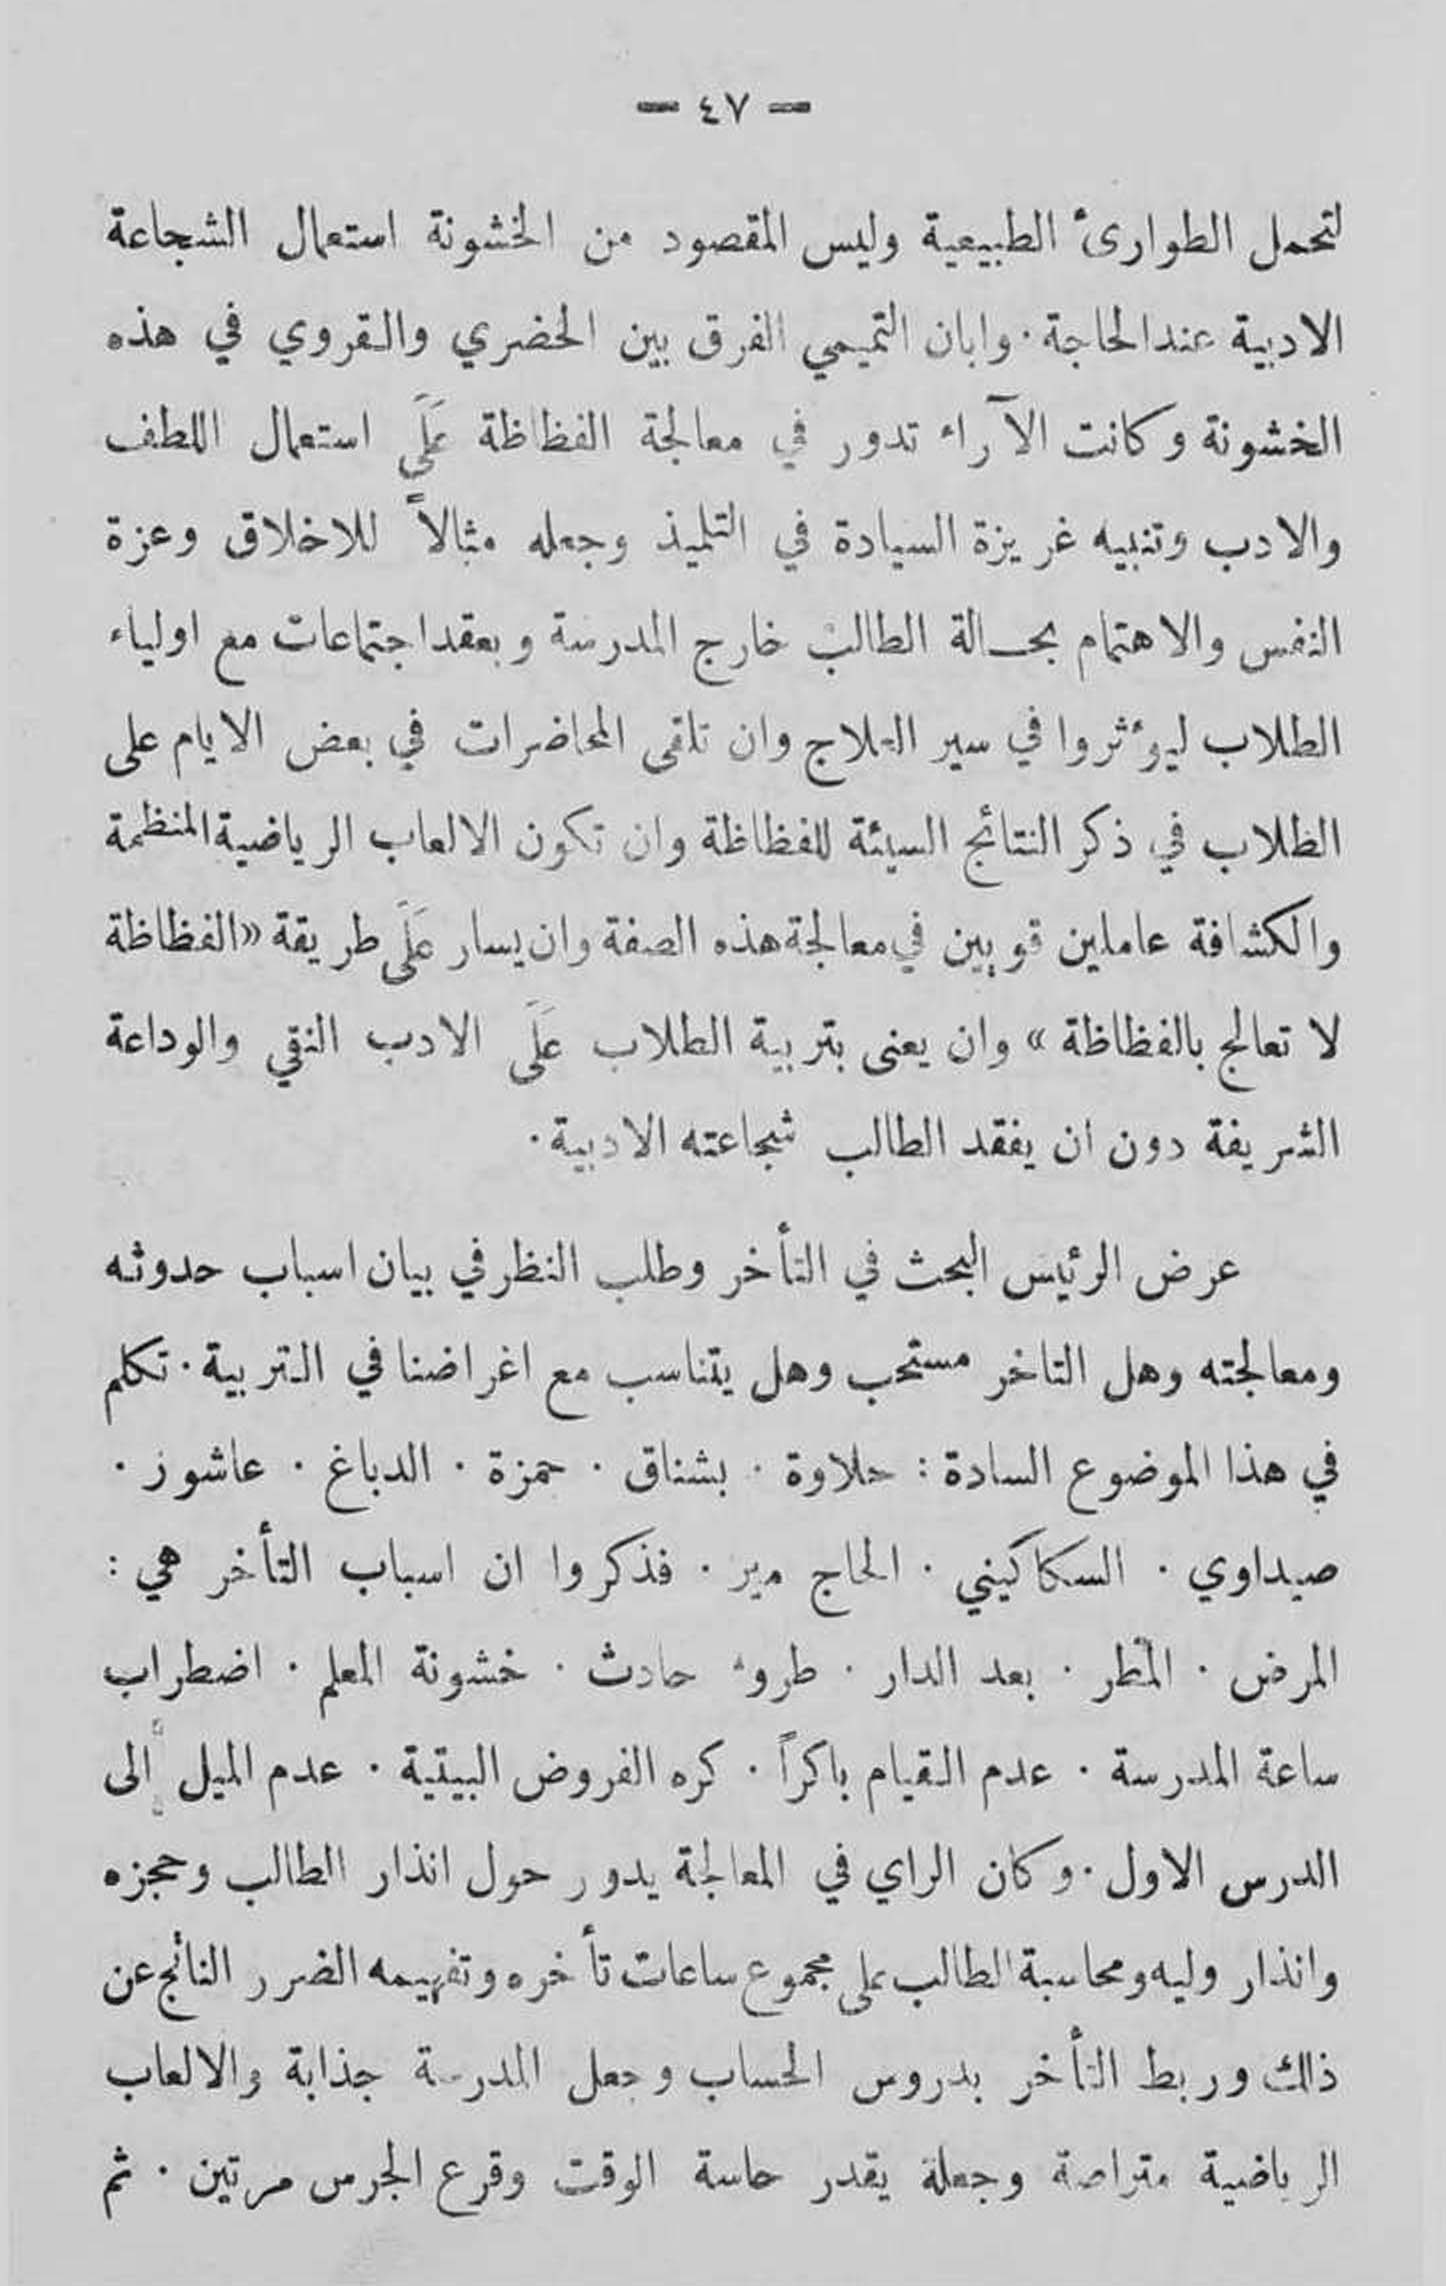 — ٤٧ —
لتحمل الطوارئ الطبيعية وليس المقصود من الخشونة استعمال الشجاعة
الادبية عند الحاجة. وابان التميمي الفرق بين الحضري والقروي في هذه
الخشونة وكانت الآراء تدور في معالجة الفظاظة عَلَى استعمال اللطف
والادب وتنبيه غريزة السيادة في التلميذ وجعله مثالاً للاخلاق وعزة
النفس والاهتمام بحالة الطالب خارج المدرسة وبعقد اجتماعات مع اولياء
الطلاب ليؤثروا في سير العلاج وان تلقى المحاضرات في بعض الايام على
الطلاب في ذكر النتائج السيئة للفظاظة وان تكون الالعاب الرياضية المنظمة
والكشافة عاملين قويين في معالجة هذه الصفة وان يسار عَلَى طريقة «الفظاظة
لا تعالج بالفظاظة» وان يعنى بتربية الطلاب عَلَى الادب النقي والوداعة
الشريفة دون ان يفقد الطالب شجاعته الادبية.
عرض الرئيس البحث في التأخر وطلب النظر في بيان اسباب حدوثه
ومعالجته وهل التاخر مستحب وهل يتناسب مع اغراضنا في التربية. تكلم
في هذا الموضوع السادة: حلاوة. بشناق. حمزة. الدباغ. عاشور.
صيداوي. السكاكيني. الحاج مير. فذكروا ان اسباب التأخر هي:
المرض. المطر. بعد الدار. طروء حادث. خشونة المعلم. اضطراب
ساعة المدرسة. عدم القيام باكراً. كره الفروض البيتية. عدم الميل الى
الدرس الاول. وكان الراي في المعالجة يدور حول انذار الطالب وحجزه
وانذار وليه ومحاسبة الطالب على مجموع ساعات تأخره وتفهيمه الضرر الناتج عن
ذلك وربط التأخر بدروس الحساب وجعل المدرسة جذابة والالعاب
الرياضية متراصة وجعله يقدر حاسة الوقت وقرع الجرس مرتين. ثم